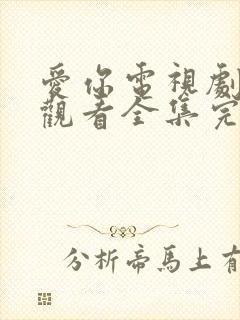 愛你電視劇
觀看全集完
分析帝馬上有